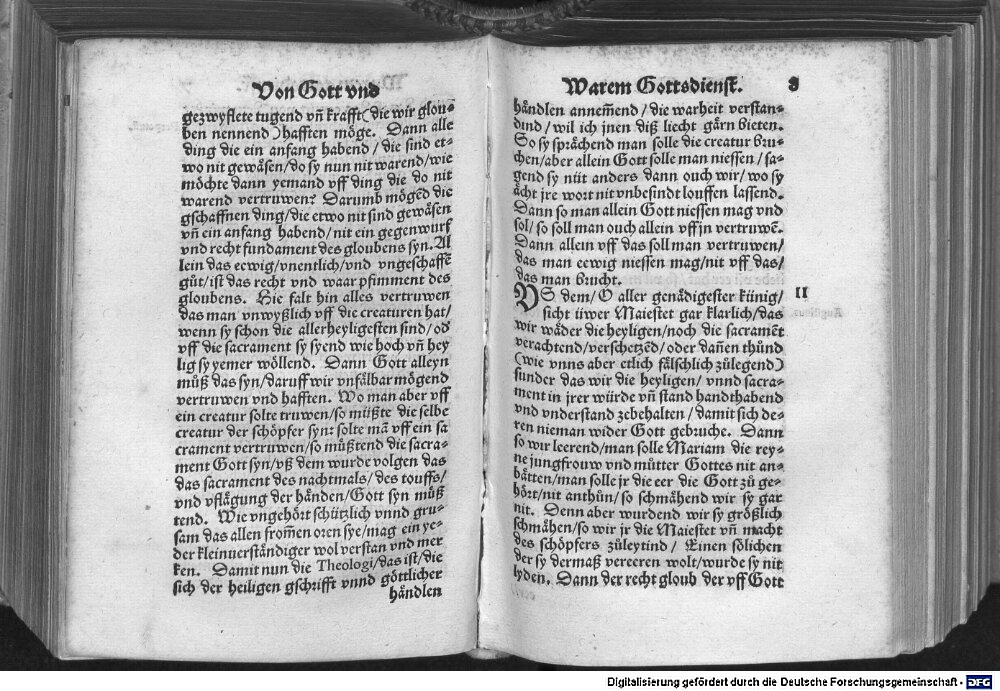 Von Gott vnd
gezwyflete tugend vñ krafft (die wir glou-
ben nennend) hafften möge. Dann alle
ding die ein anfang habend / die sind et-
wo nit gewäsen / do sy nun nit warend / wie
möchte dann yemand vff ding die do nit
warend vertruwen? Darumb mögēd die
gschaffnen ding / die etwo nit sind gewäsen
vñ ein anfang habend / nit ein gegenwurf
vnd recht fundament des gloubens syn. Al
lein das eewig / vnentlich / vnd vngeschaffē
gůt / ist das recht vnd waar pfimment des
gloubens. Hie falt hin alles vertruwen
das man vnwyßlich vff die creaturen hat /
wenn sy schon die allerheyligesten sind / od'
vff die sacrament sy syend wie hoch vñ hey
lig sy yemer wöllend. Dann Gott alleyn
můß das syn / daruff wir vnfälbar mögend
vertruwen vnd hafften. Wo man aber vff
ein creatur solte truwen / so müßte die selbe
creatur der schöpfer syn: solte mā vff ein sa
crament vertruwen / so müßtend die sacra-
ment Gott syn / vß dem wurde volgen das
das sacrament des nachtmals / des touffs /
vnd vflägung der händen / Gott syn můß
tend. Wie vngehört schützlich vnnd gru-
sam das allen fromēn oren sye / mag ein ye-
der kleinuerständiger wol verstan vnd mer
ken. Damit nun die Theologi / das ist / die
sich der heiligen gschrifft vnnd göttlicher
händlen
Warem Gottsdienst. 8
händlen annemend / die warheit verstan-
dind / wil ich jnen diß liecht gärn bieten.
So sy sprächend man solle die creatur bru-
chen / aber allein Gott solle man niessen / sa-
gend sy nüt anders dann ouch wir / wo sy
ächt jre wort nit vnbesindt louffen lassend.
Dann so man allein Gott niessen mag vnd
sol / so soll man ouch allein vff jn vertruwē.
Dann allein vff das soll man vertruwen /
das man eewig niessen mag / nit vff das /
das man brucht.
VS dem / O aller genädigester künig / II
sicht üwer Maiestet gar klarlich / das
wir wäder die heyligen / noch die sacramēt
verachtend / verschetzēd / oder dañen thůnd
(wie vnns aber etlich fälschlich zůlegend)
sunder das wir die heyligen / vnnd sacra-
ment in jrer würde vñ stand handthabend
vnd vnderstand zebehalten / damit sich de-
ren nieman wider Gott gebruche. Dann
so wir leerend / man solle Mariam die rey-
ne jungfrouw vnd můtter Gottes nit an-
bätten / man solle jr die eer die Gott zů ge-
hört / nit anthůn / so schmähend wir sy gar
nit. Denn aber wurdend wir sy größlich
schmähen / so wir jr die Maiestet vñ macht
des schöpfers zůleytind / Einen sölichen
der sy dermaß vereeren wolt / wurde sy nit
lyden. Dann der recht gloub der vff Gott
Digitalisierung gefördert durch die Deutsche Forschungsgemeinschaft - DFG